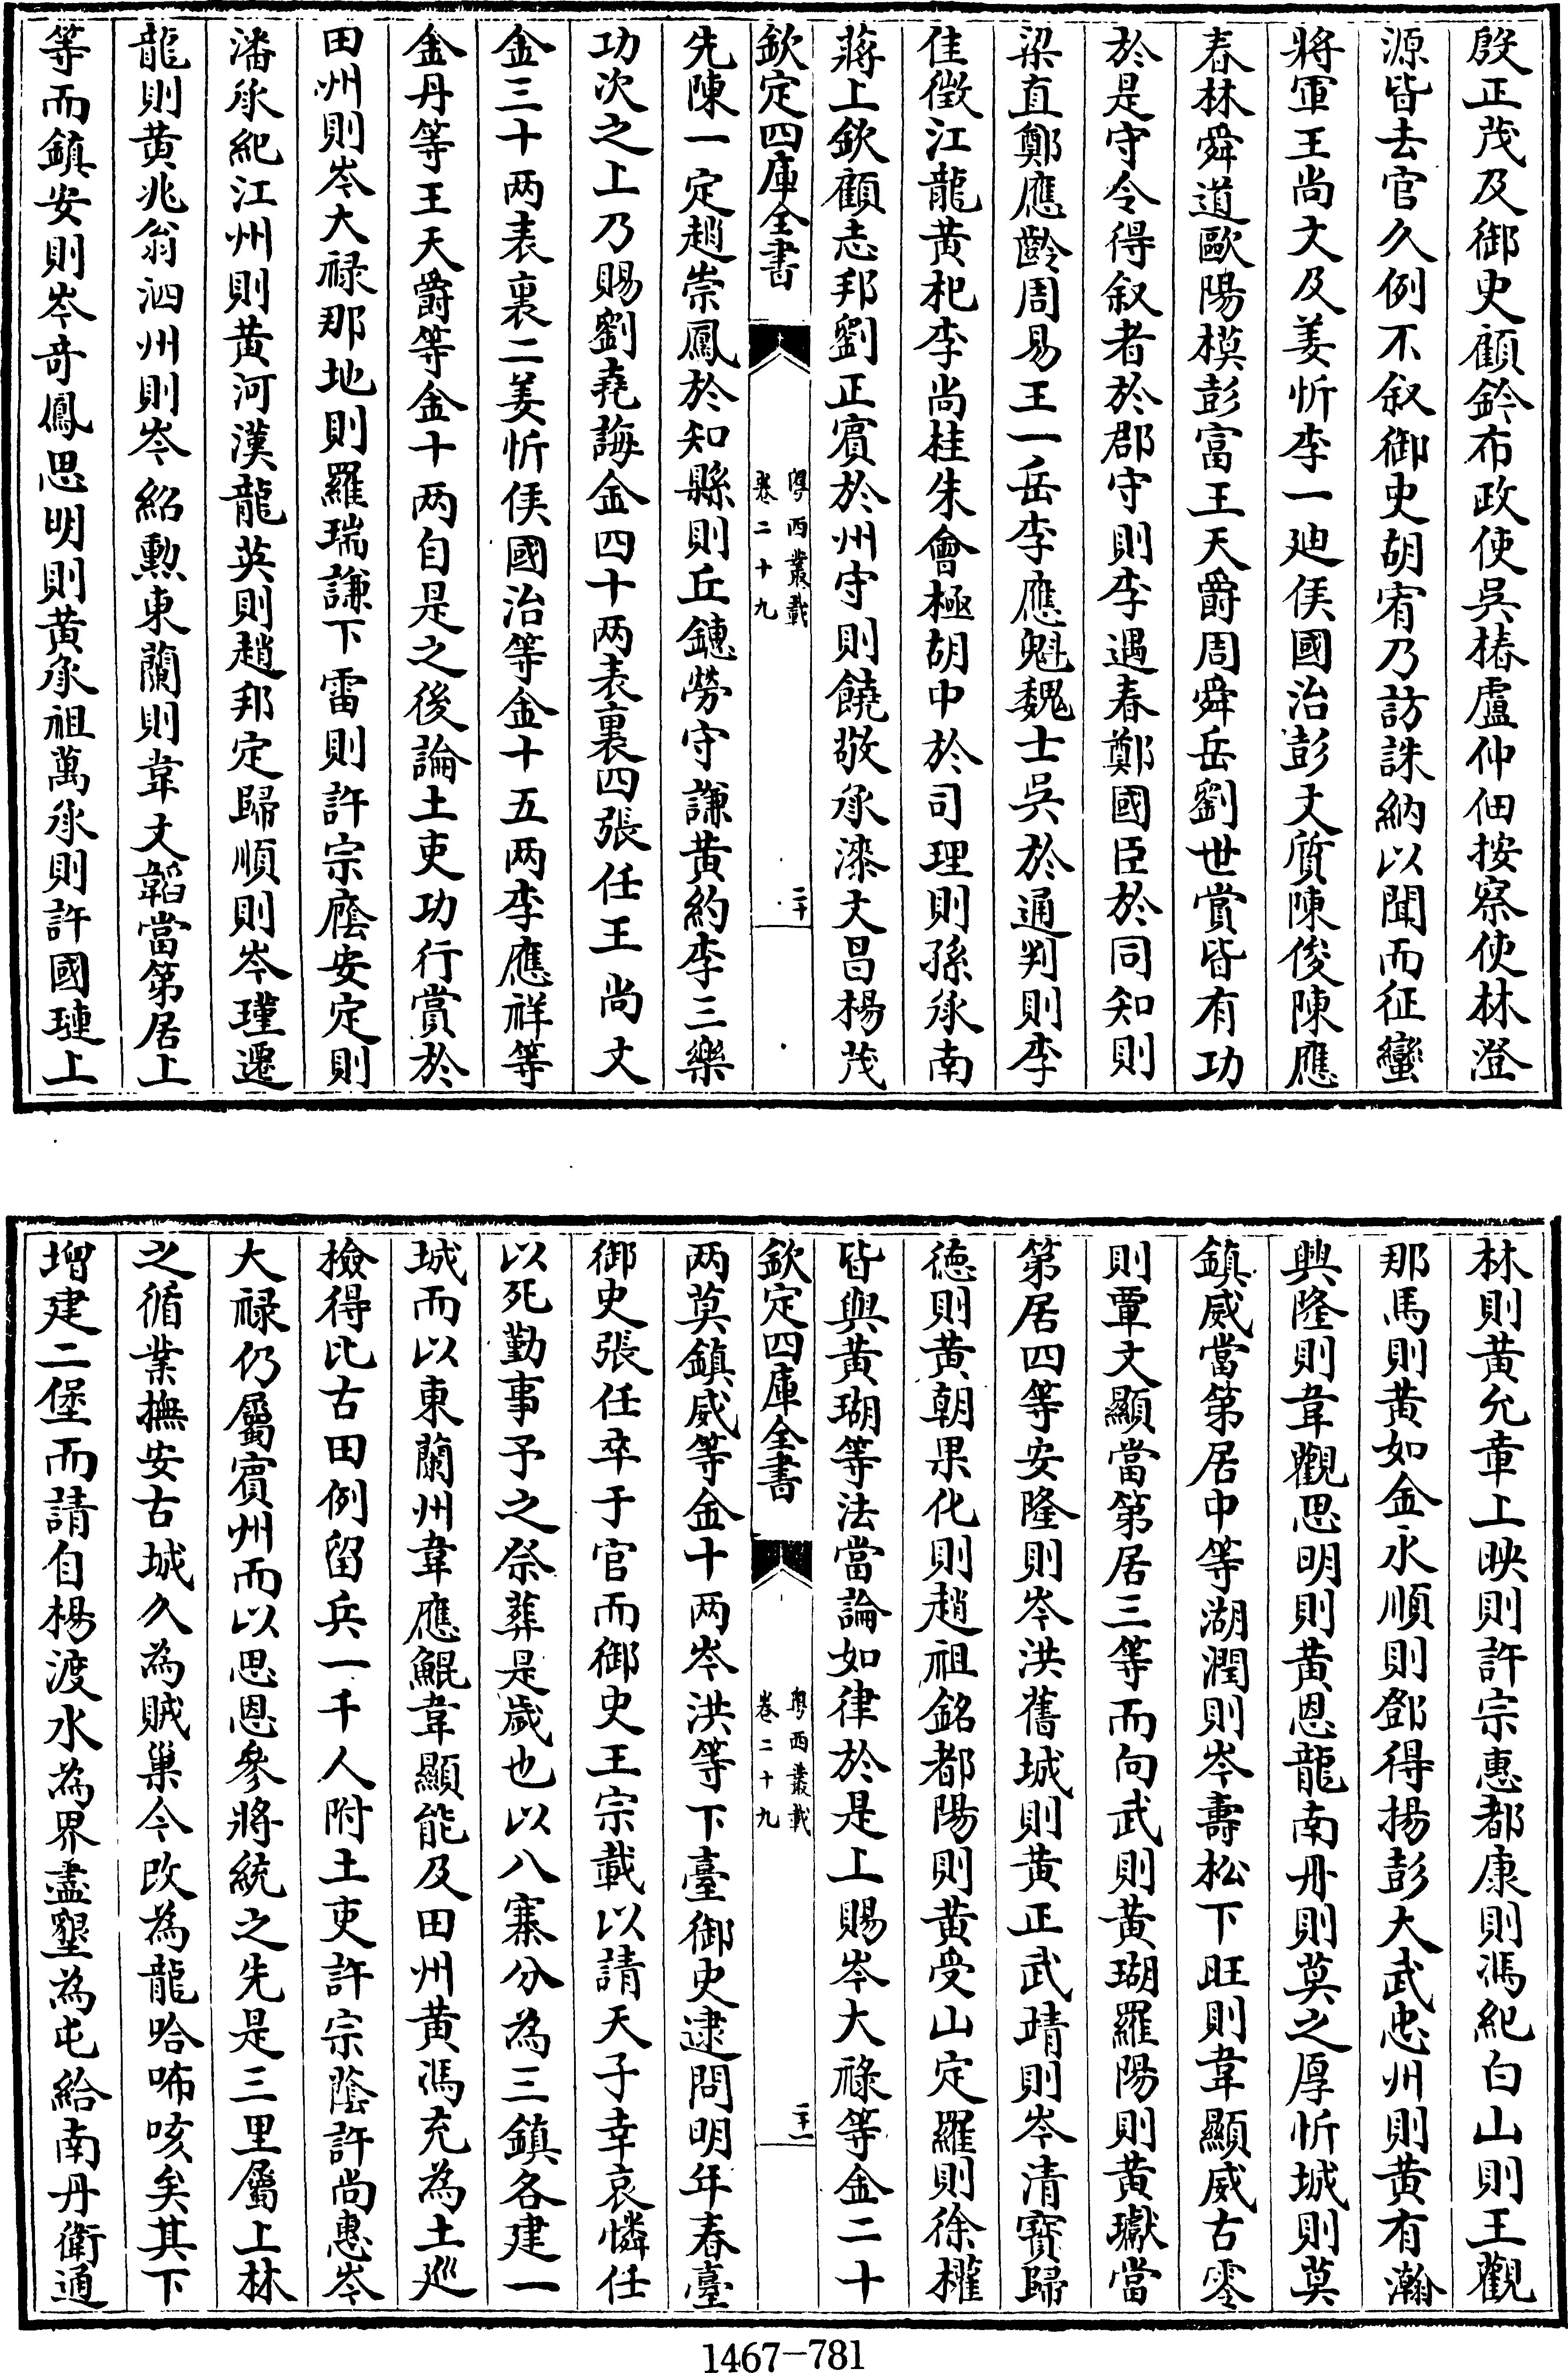 殷正茂及御史顧鈐布政使吳樁盧仲佃按察使林澄
源皆去官久例不叙御史胡宥乃訪誅納以聞而征蠻
將軍王尚文及姜忻李一廸侯國治彭文質陳俊陳應
春林舜道歐陽模彭富王天爵周舜岳劉世賞皆有功
於是守令得叙者於郡守則李遇春鄭國臣於同知則
梁直鄭應齡周易王一岳李應魁魏士吳於通判則李
佳徵江龍黄杞李尚桂朱會極胡中於司理則孫承南
蔣上欽顧志邦劉正賓於州守則饒敬承漆文昌楊茂
欽定四庫全書
粤西叢載
卷二十九
二十
先陳一定趙崇鳳於知縣則丘鏸勞守謙黄約李三樂
功次之上乃賜劉堯誨金四十两表裏四張任王尚文
金三十两表裏二姜忻侯國治等金十五两李應祥等
金丹等王天爵等金十两自是之後論土吏功行賞於
田州則岑大禄那地則羅瑞謙下雷則許宗廕安定則
潘承紀江州則黄河漢龍英則趙邦定歸順則岑瑾遷
龍則黄兆翁泗州則岑紹勲東蘭則韋文韜當第居上
等而鎮安則岑奇鳳思明則黄承祖萬承則許國璉上
林則黄允章上映則許宗惠都康則馮紀白山則王觀
那馬則黄如金永順則鄧得揚彭大武忠州則黄有瀚
興隆則韋觀思明則黄恩龍南丹則莫之厚忻城則莫
鎮威當第居中等湖潤則岑壽松下旺則韋顯威古零
則覃文顯當第居三等而向武則黄瑚羅陽則黄瓛當
第居四等安隆則岑洪舊城則黄正武靖則岑清寳歸
德則黄朝果化則趙祖銘都陽則黄受山定羅則徐權
皆與黄瑚等法當論如律於是上賜岑大祿等金二十
欽定四庫全書
粤西叢載
卷二十九
二十一
两莫鎮威等金十两岑洪等下臺御史逮問明年春臺
御史張任卒于官而御史王宗載以請天子幸哀憐任
以死勤事予之祭葬是歲也以八寨分為三鎮各建一
城而以東蘭州韋應鯤韋顯能及田州黄馮充為土廵
檢得比古田例留兵一千人附土吏許宗蔭許尚惠岑
大禄仍屬賓州而以思恩參將統之先是三里屬上林
之循業撫安古城久為賊巢今改為龍哈咘咳矣其下
增建二堡而請自楊渡水為界盡墾為屯給南丹衛通
1467-781